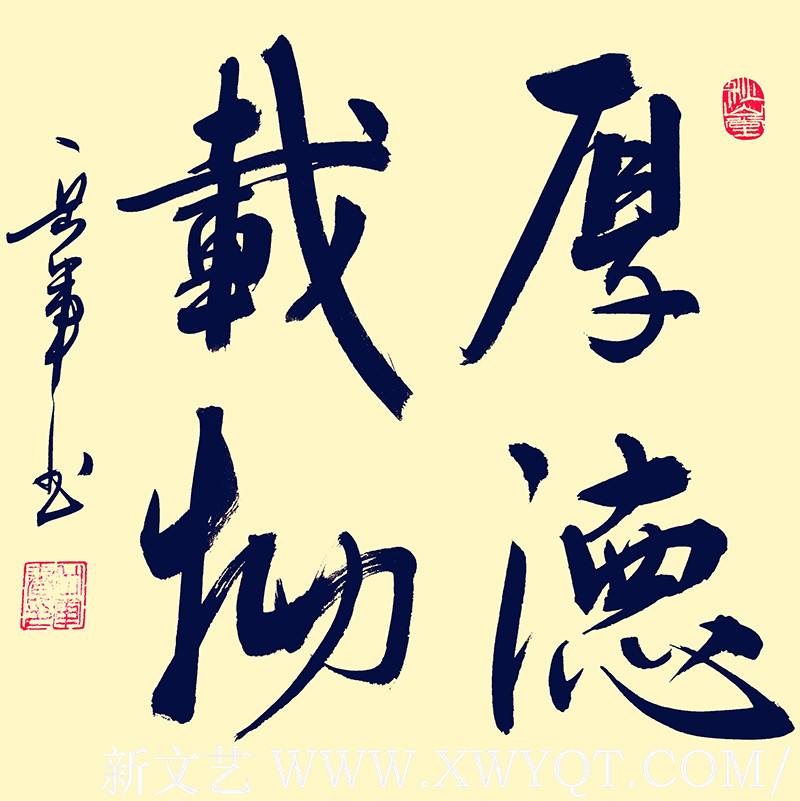 厚德
載物
新文艺 WWW.XWYQT.COM/